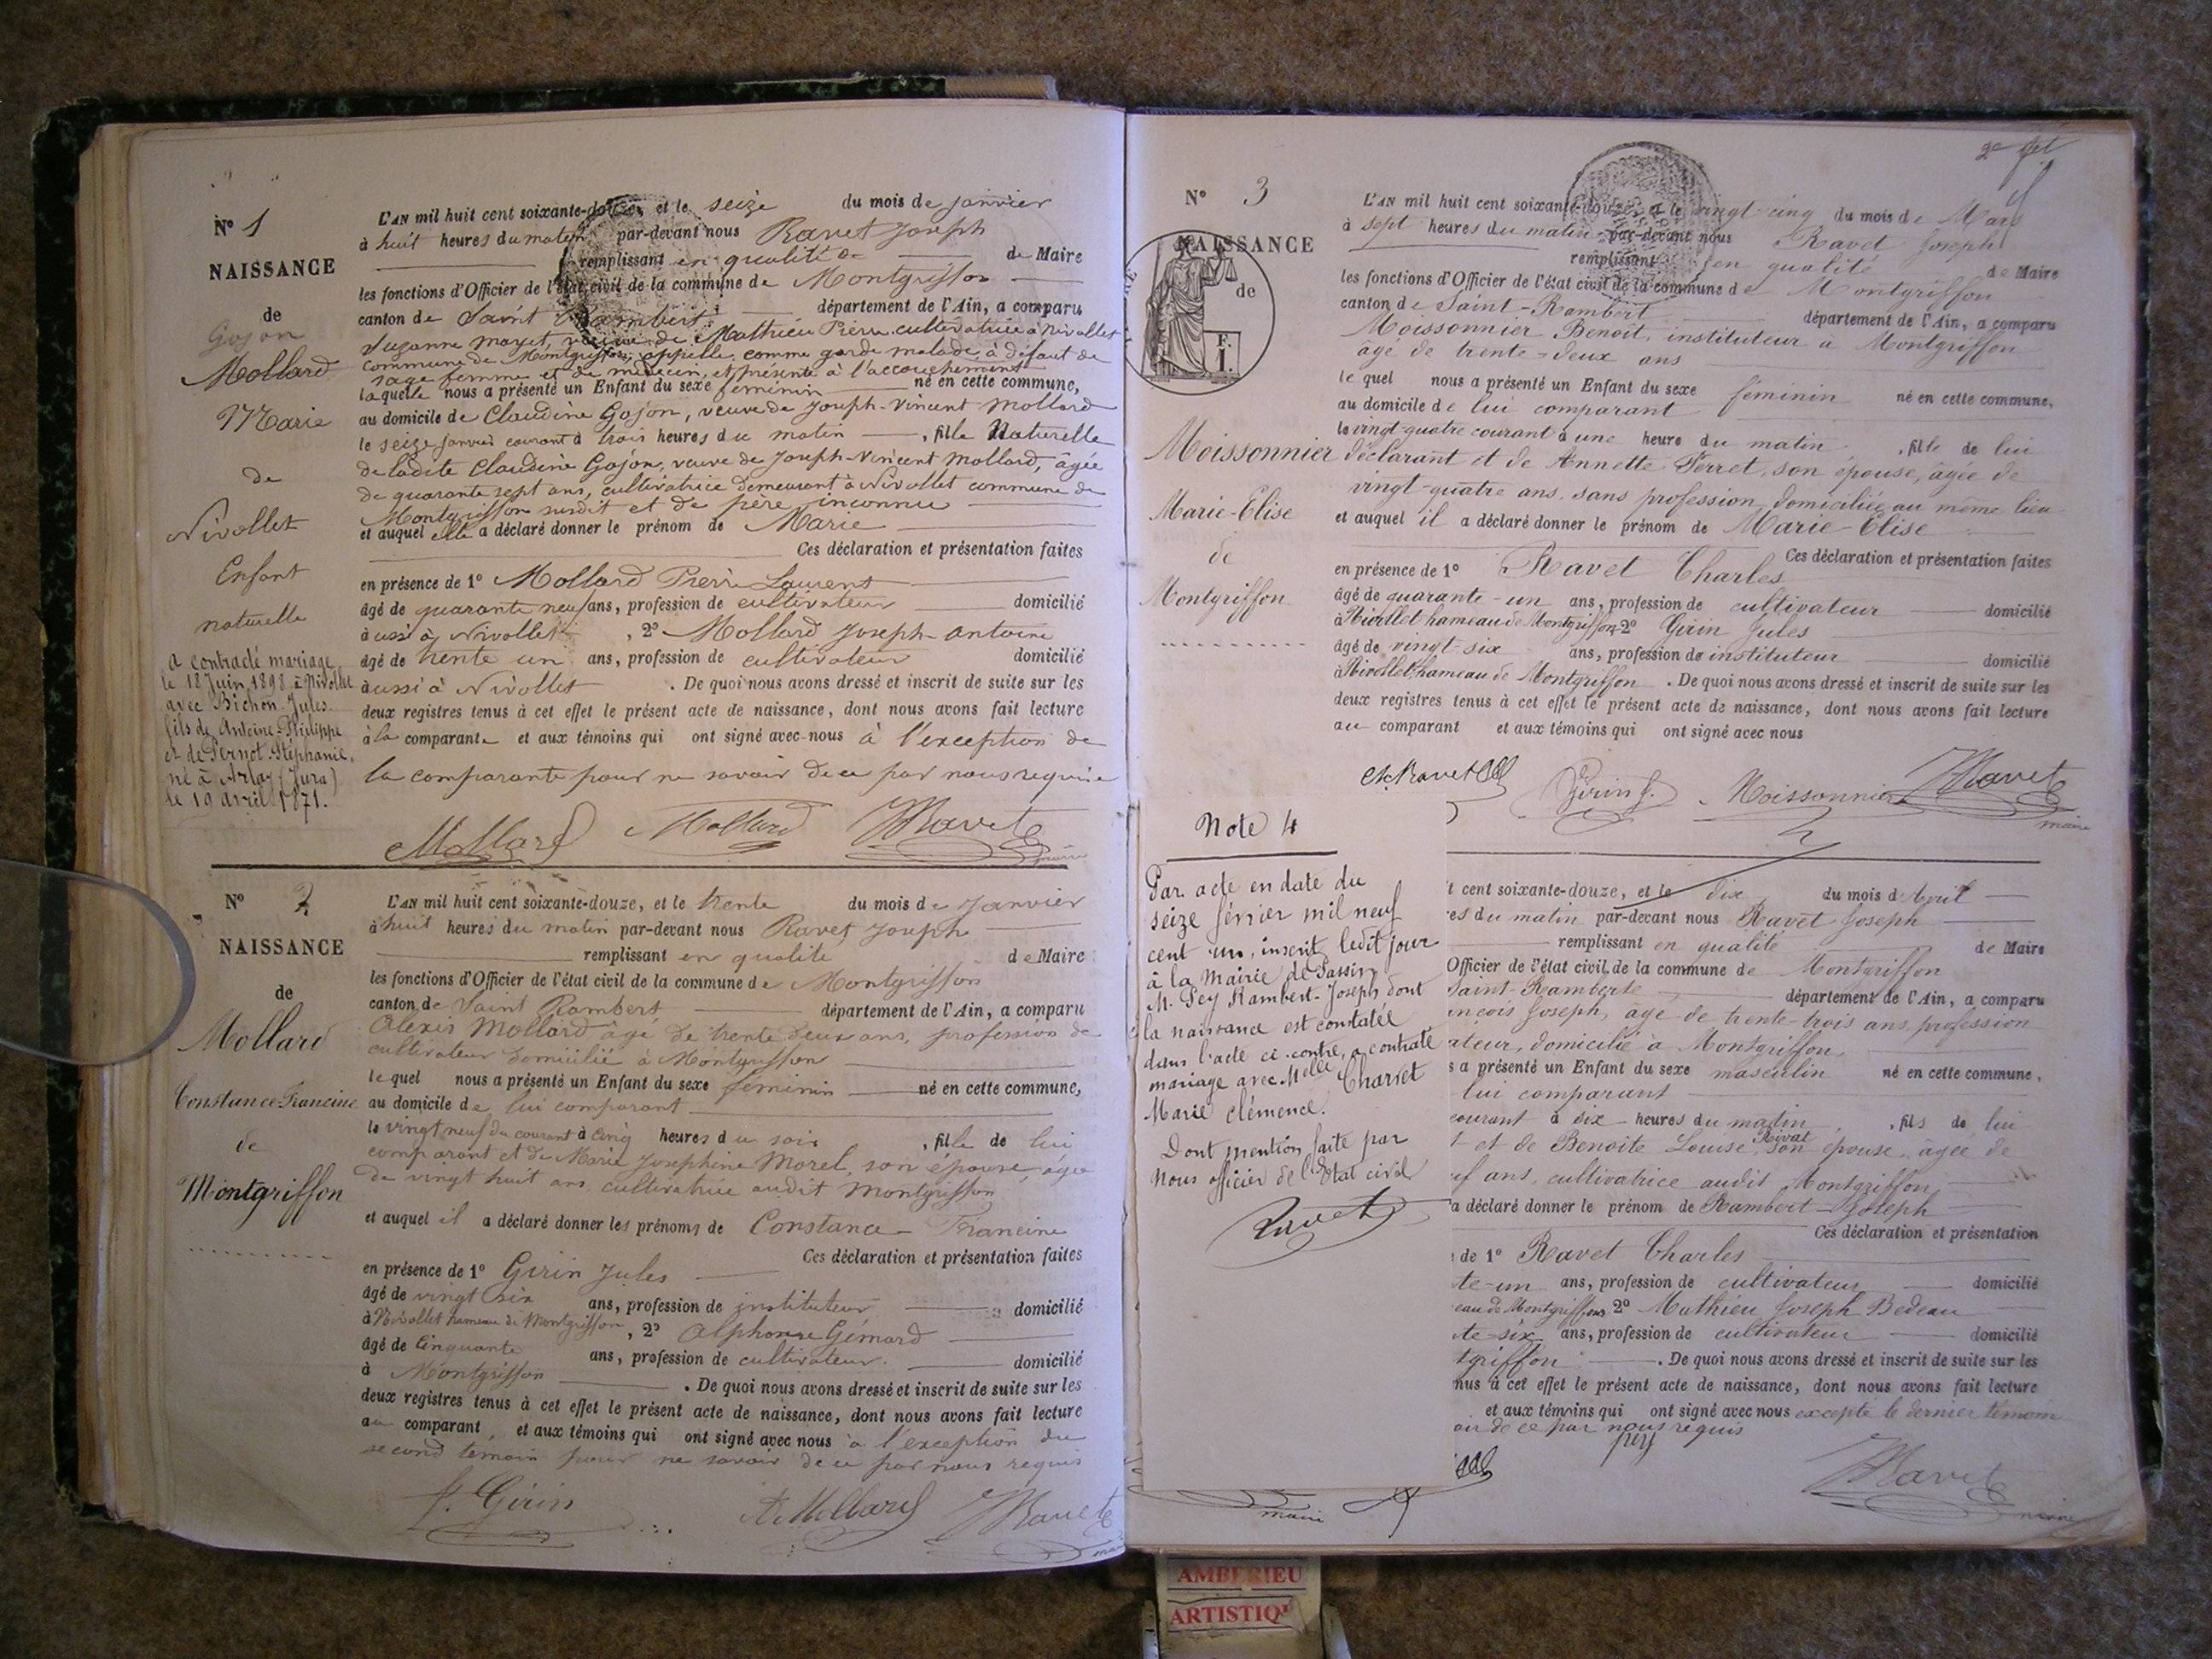 Nº 1
NAISSANCE
de
Gojon
Mollard
Marie
de
Nivollet
Enfant
naturelle
a contracté mariage
le 18 Juin 1898 à Nivollet
avec Bichon Jules
fils de Antoine-Philippe
et de Pernot Stéphanie,
né à Arlay (Jura)
le 19 avril 1871.
L'AN mil huit cent soixante-douze, et le seize du mois de janvier
à huit heures du matin par-devant nous Ravet Joseph
remplissant en qualité de Maire
les fonctions d'Officier de l'état civil de la commune de Montgriffon
canton de Saint Rambert département de l'Ain, a comparu
Suzanne Mayet, veuve de Mathieu Pierre cultivatrice à Nivollet
commune de Montgriffon, appellée comme garde malade, à défaut de
sage femme et de médecin, et présente à l'accouchement
laquelle nous a présenté un Enfant du sexe féminin né en cette commune,
au domicile de Claudine Gojon, veuve de Joseph-Vincent Mollard
le seize janvier courant à trois heures du matin , fille Naturelle
de ladite Claudine Gojon, veuve de Joseph-Vincent Mollard, âgée
de quarante sept ans, cultivatrice demeurant à Nivollet commune de
Montgriffon susdit et de père inconnu
et auquel elle a déclaré donner le prénom de Marie
Ces déclaration et présentation faites
en présence de 1º Mollard Pierre Laurent
âgé de quarante neuf ans, profession de cultivateur domicilié
aussi à Nivollet , 2º Mollard Joseph-Antoine
âgé de trente un ans, profession de cultivateur domicilié
aussi à Nivollet . De quoi nous avons dressé et inscrit de suite sur les
deux registres tenus à cet effet le présent acte de naissance, dont nous avons fait lecture
à la comparante et aux témoins qui ont signé avec nous à l'exception de
la comparante pour ne savoir de ce par nous requise
Mollard Mollard JRavet
maire
Nº 2
NAISSANCE
de
Mollard
Constance Francine
de
Montgriffon
L'AN mil huit cent soixante-douze, et le trente du mois de janvier
à huit heures du matin par-devant nous Ravet Joseph
remplissant en qualité de Maire
les fonctions d'Officier de l'état civil de la commune de Montgriffon
canton de Saint Rambert département de l'Ain, a comparu
Alexis Mollard âgé de trente deux ans, profession de
cultivateur domicilié à Montgriffon
lequel nous a présenté un Enfant du sexe féminin né en cette commune,
au domicile de lui comparant
le vingt neuf du courant à cinq heures du soir , fille de lui
comparant et de Marie Josephine Morel, son épouse, âgée
de vingt huit ans cultivatrice audit Montgriffon
et auquel il a déclaré donner les prénoms de Constance-Francine
Ces déclaration et présentation faites
en présence de 1º Girin Jules
âgé de vingt six ans, profession de instituteur domicilié
à Nivollet hameau de Montgriffon, 2º Alphonse Gémard
âgé de Cinquante ans, profession de cultivateur domicilié
à Montgriffon . De quoi nous avons dressé et inscrit de suite sur les
deux registres tenus à cet effet le présent acte de naissance, dont nous avons fait lecture
au comparant, et aux témoins qui ont signé avec nous à l'exception du
second temoin pour ne savoir de ce par nous requis
J. Girin A. Mollard JRavet
2e
Nº 3
NAISSANCE
de
F.
I.
Moissonnier
Marie-Elise
de
Montgriffon
L'AN mil huit cent soixante-douze, et le vingt-cinq du mois de Mars
à sept heures du matin par-devant nous Ravet Joseph
remplissant en qualité de Maire
les fonctions d'Officier de l'état civil de la commune de Montgriffon
canton de Saint-Rambert département de l'Ain, a comparu
Moissonnier Benoit, instituteur à Montgriffon
âgé de trente-deux ans
lequel nous a présenté un Enfant du sexe féminin né en cette commune,
au domicile de lui comparant
le vingt-quatre courant à une heure du matin , fille de lui
déclarant et de Annette Perret, son épouse, âgée de
vingt-quatre ans, sans profession, domiciliée au même lieu
et auquel il a déclaré donner le prénom de Marie-Elise
Ces déclaration et présentation faites
en présence de 1º Ravet Charles
âgé de quarante-un ans, profession de cultivateur domicilié
à Nivollet hameau de Montgriffon, 2º Girin Jules
âgé de vingt-six ans, profession de instituteur domicilié
à Nivollet, hameau de Montgriffon . De quoi nous avons dressé et inscrit de suite sur les
deux registres tenus à cet effet le présent acte de naissance, dont nous avons fait lecture
au comparant et aux témoins qui ont signé avec nous
Ch. Ravet Girin J. Moissonnier JRavet
maire
Note 4
Par acte en date du
seize février mil neuf
cent un, inscrit ledit jour
à la Mairie de Sassin
M. Pey Rambert-Joseph dont
la naissance est constatée
dans l'acte ci-contre, a contraté
mariage avec Melle Charvet
Marie Clémence.
Dont mention faite par
Nous officier de l'Etat civil
Ravet
t cent soixante-douze, et le dix du mois d'Avril
es du matin par-devant nous Ravet Joseph
remplissant en qualité de Maire
Officier de l'état civil de la commune de Montgriffon
Saint-Ramberte département de l'Ain, a comparu
ançois Joseph, âgé de trente-trois ans, profession
ateur, domicilié à Montgriffon,
s a présenté un Enfant du sexe masculin né en cette commune,
lui comparant
courant à dix heures du matin , fils de lui
t et de Benoite Louise Rivat son épouse, âgée de
uf ans, cultivatrice audit Montgriffon
a déclaré donner le prénom de Rambert-Joseph
Ces déclaration et présentation
de 1º Ravet Charles
te-un ans, profession de cultivateur domicilié
eau de Montgriffon 2º Mathieu Joseph Bedeau
te-six ans, profession de cultivateur domicilié
tgriffon . De quoi nous avons dressé et inscrit de suite sur les
nus à cet effet le présent acte de naissance, dont nous avons fait lecture
et aux témoins qui ont signé avec nous excepté le dernier témoin
oir de ce par nous requis
pey
JRavet
maire
maire
AMBERIEU
ARTISTIQ